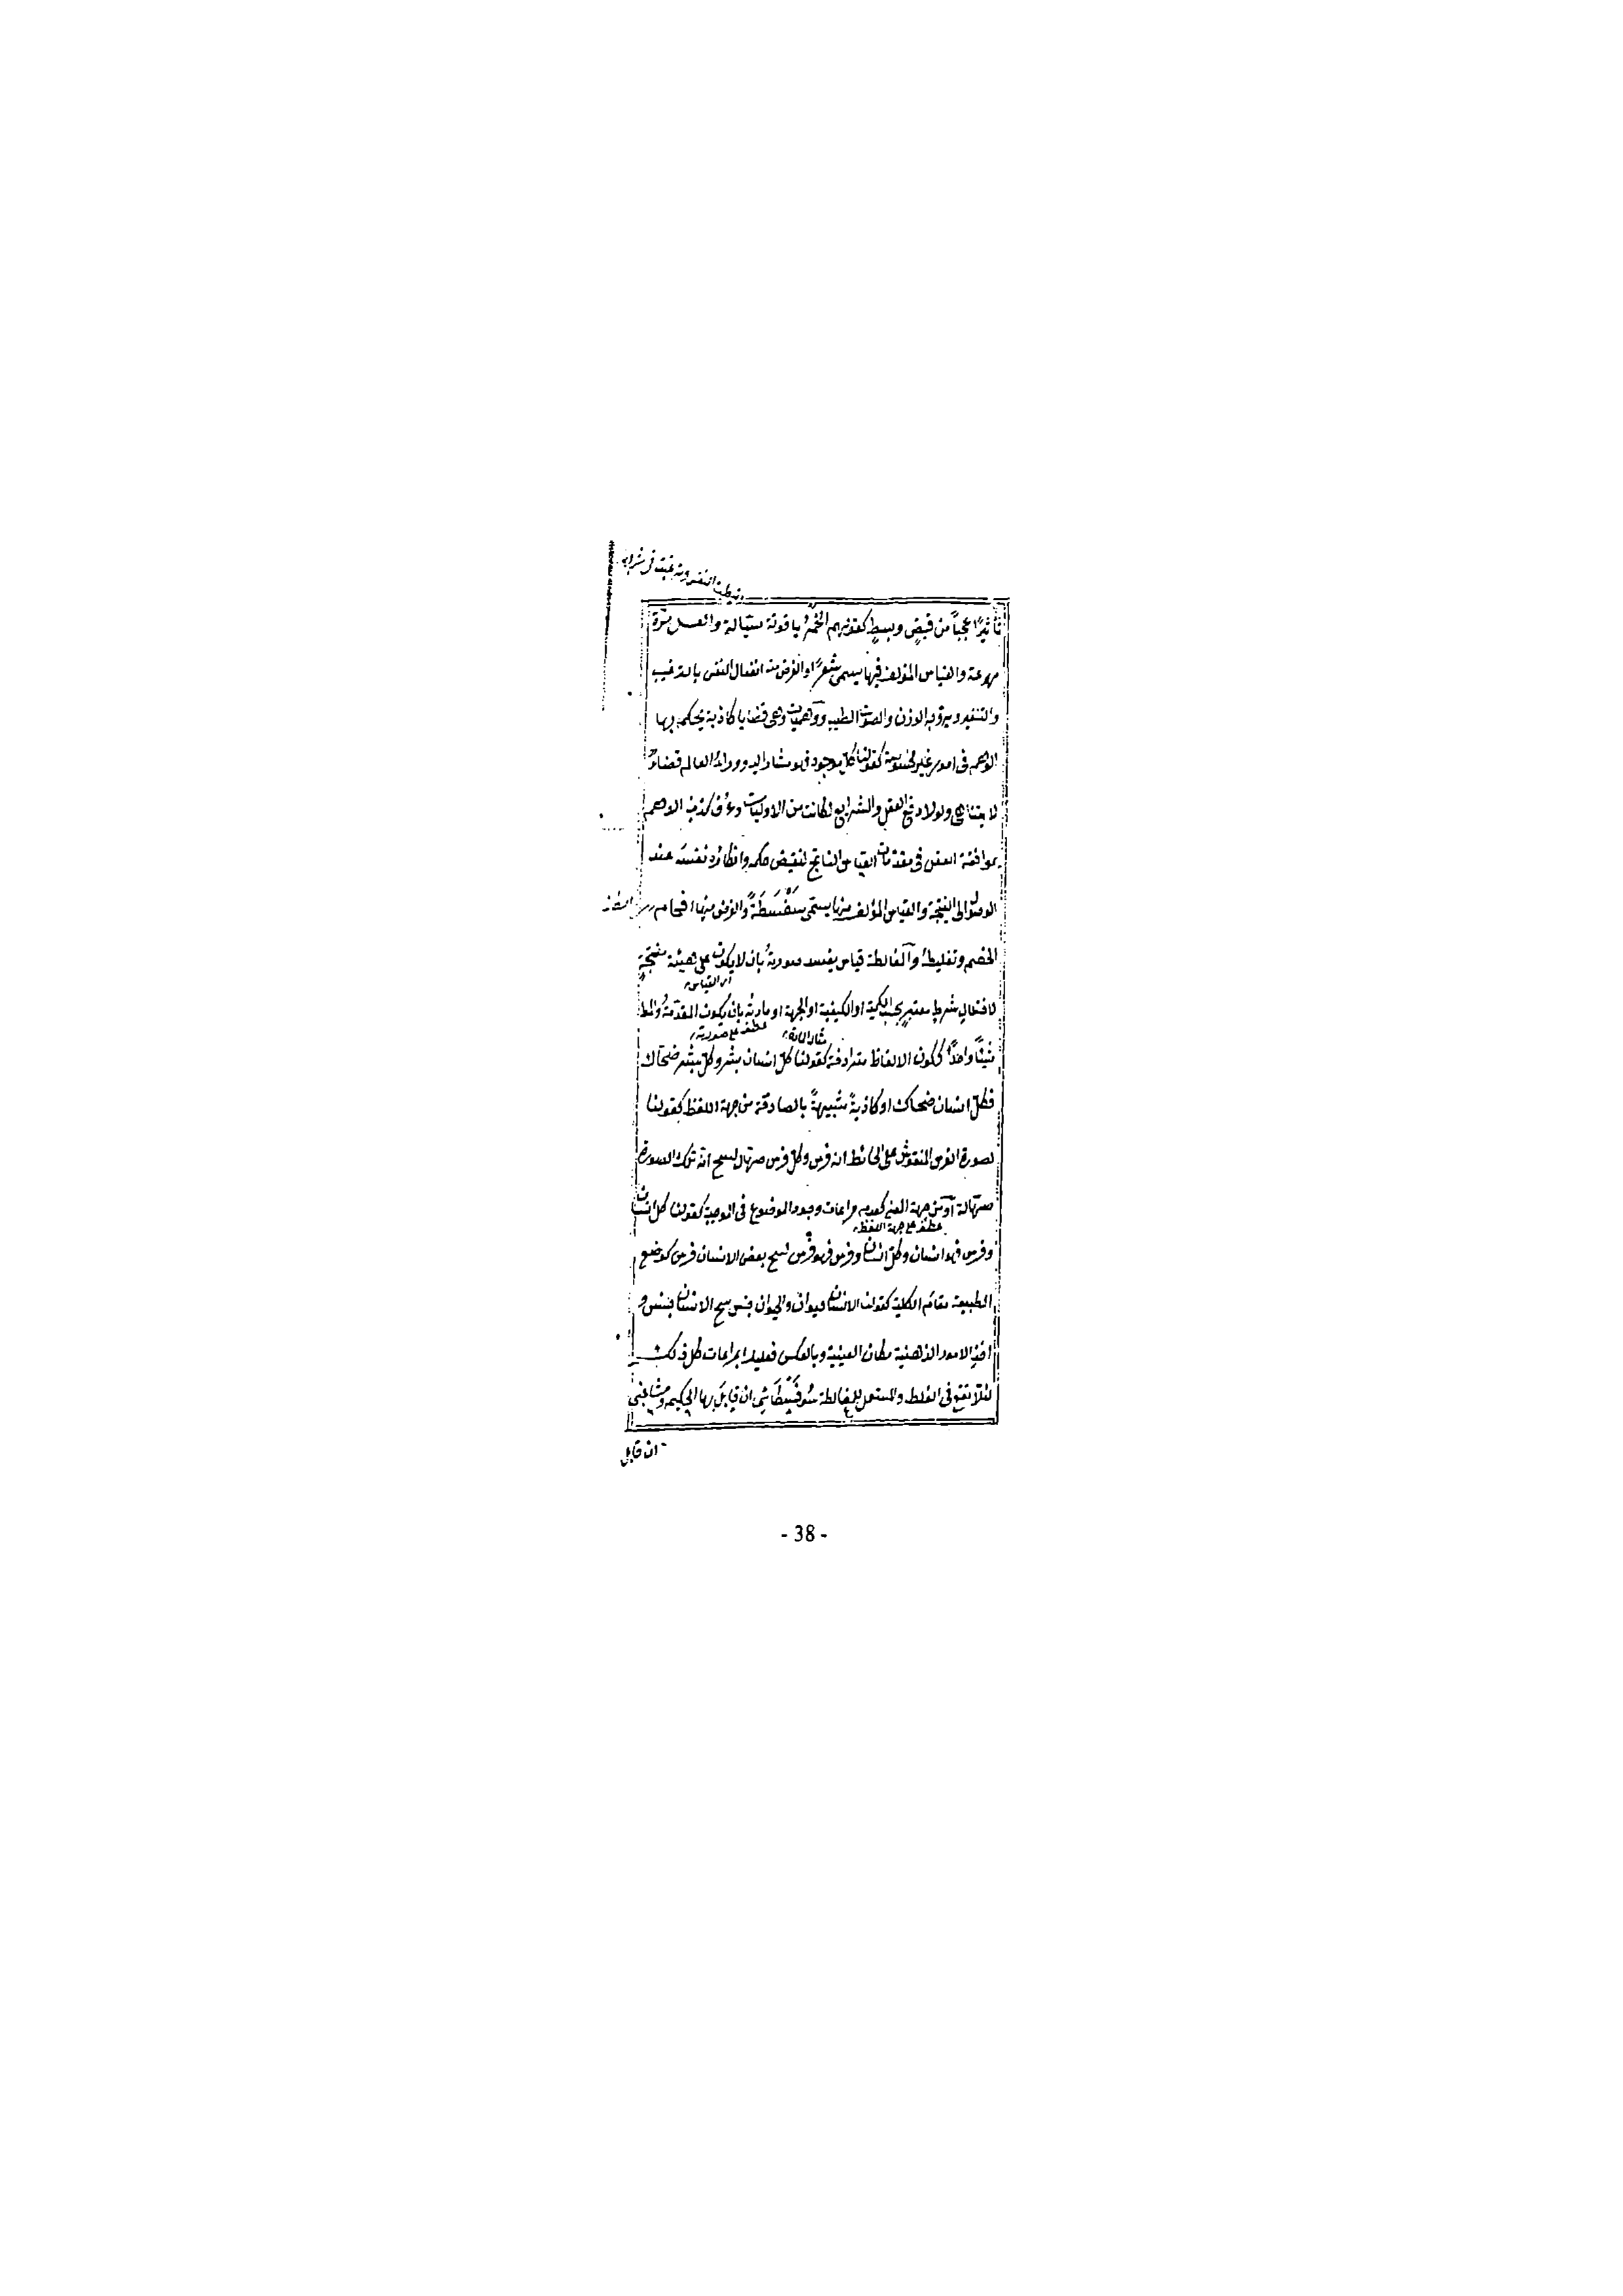 تأثيرًا عجيباً من قبضٍ وبسطٍ كقولهم الخمرُ ياقوتة سيّالة والعسل مرّة
مهوعة والقياس المؤلف فيها يسمى شعرًا والغرض منه انفعال النفس بالترغيب
والتنفير ويروّجه الوزن والصوت الطيب ووهميات وهى قضايا كاذبة يحكم بها
الوهم فى امور غير محسوسة كقولنا كل موجود فهو مشار اليه ووراءُ العالم فضاءٌ
لا يتناهى ولولا دفع العقل والشرايع لكانت من الاوليات وعُرف كذبُ الوهم
بموافقة العقل فى مقدمات القياس الناتج لنقيض حكمه وانكاره نفسَه عند
الوصول الى النتيجة والقياس المؤلف منها يسمّى سَفْسَطَةً والغرض منها افحام
الخصم وتغليطُه والمغالطة قياس يفسد صورتهُ بان لا يكون على هيئة منتجةٍ
اى القياس
لاختلالِ شرطٍ معتبرٍ بحسب الكمية او الكيفية او الجهة او مادتُه بان يكون المقدّمةُ والمط
عطف على صورته
شيئًا واحدًا لكون الالفاظ مترادفة كقولنا كلّ انسان بشر وكلّ بشر ضحّاك
فكلّ انسان ضحاك او كاذبةً شبيهةً بالصادقة من جهة اللفظ كقولنا
لصورة الفرس المنقوش على الحائط انه فرس وكلّ فرس صهّال ينتج انّ تلك الصورة
صهّالة او من جهة المعنى كعدم مراعات وجود الموضوع فى الموجبة كقولنا كل انسان
عطف على جهة اللفظ
وفرس فهو انسان وكلّ انسان وفرس فهو فرس ينتج بعض الانسان فرس كوضع
الطبيعية مقام الكلية كقولنا الانسان حيوان والحيوان جنس ينتج الانسان جنس و
اخذِ الامور الذهنية مكان العينية وبالعكس فعليك بمراعات كل ذلك
لئلّا تقع فى الغلط والمستعمل للمغالطة سُوفَسْطَائِىّ ان قابَلَ بها الحكيم ومشاغبى
ان قابل
- 38 -